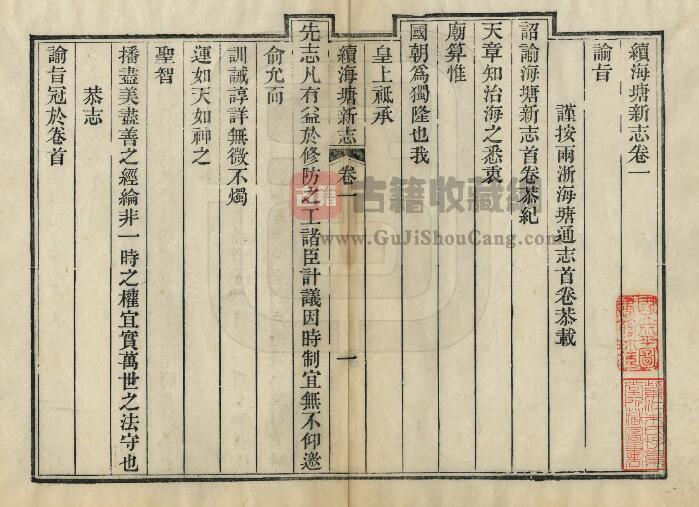 續海塘新志卷一
諭旨
謹按兩浙海塘通志首卷恭載
詔諭海塘新志首卷恭紀
天章知治海之悉衷
廟算惟
國朝為獨隆也我
皇上祗承
續海塘新志 卷一 一
先志凡有益於修防之工諸臣計議因時制宜無不仰邀
俞允而
訓誡諄詳無微不燭
運如天如神之
聖智
播盡美盡善之經綸非一時之權宜實萬世之法守也
恭志
諭旨冠於卷首
古籍
古籍收藏
www.GuJiShouCang.com